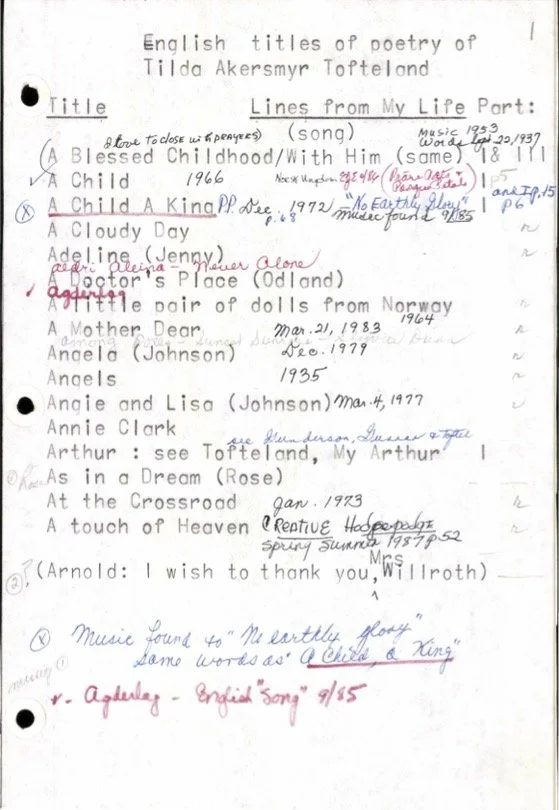 1
English titles of poetry of
Tilda Akersmyr Tofteland
Title Lines from My Life Part:
(song) Music 1953
(love to close with PRAYERS) Words Sept 22, 1937
A Blessed Childhood/With Him (same) I & III
A Child 1966 I p5
A Child A King P.P. Dec. 1972 "No Earthly Glory" I and I p.15
p.68 music found 9/85 p6
A Cloudy Day
Adeline (Jenny)
aldri Aleina - Never Alone
A Doctor's Place (Odland)
Agderlag
A little pair of dolls from Norway 1964
A Mother Dear Mar. 21, 1983
Angela (Johnson) Dec. 1979
Angels 1935
Angie and Lisa (Johnson) Mar. 4, 1977
Annie Clark
see Gunderson,
Arthur : see Tofteland, My Arthur I
As in a Dream (Rose)
At the Crossroad Jan. 1973
A touch of Heaven (CREATIVE Hodgepodge
Spring Summer 1987 p.52
Mrs
(2)? (Arnold: I wish to thank you, Willroth)
(x) Music found to "No earthly glory"
same words as "A Child, a King"
missing (1)
v. Agderlag - English "Song" 9/85